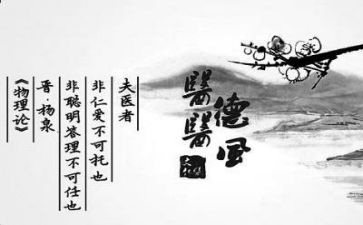 醫德
醫風
夫医者
非仁爱不可托也
非聪明答理不可任也
晋·杨泉
《物理论》